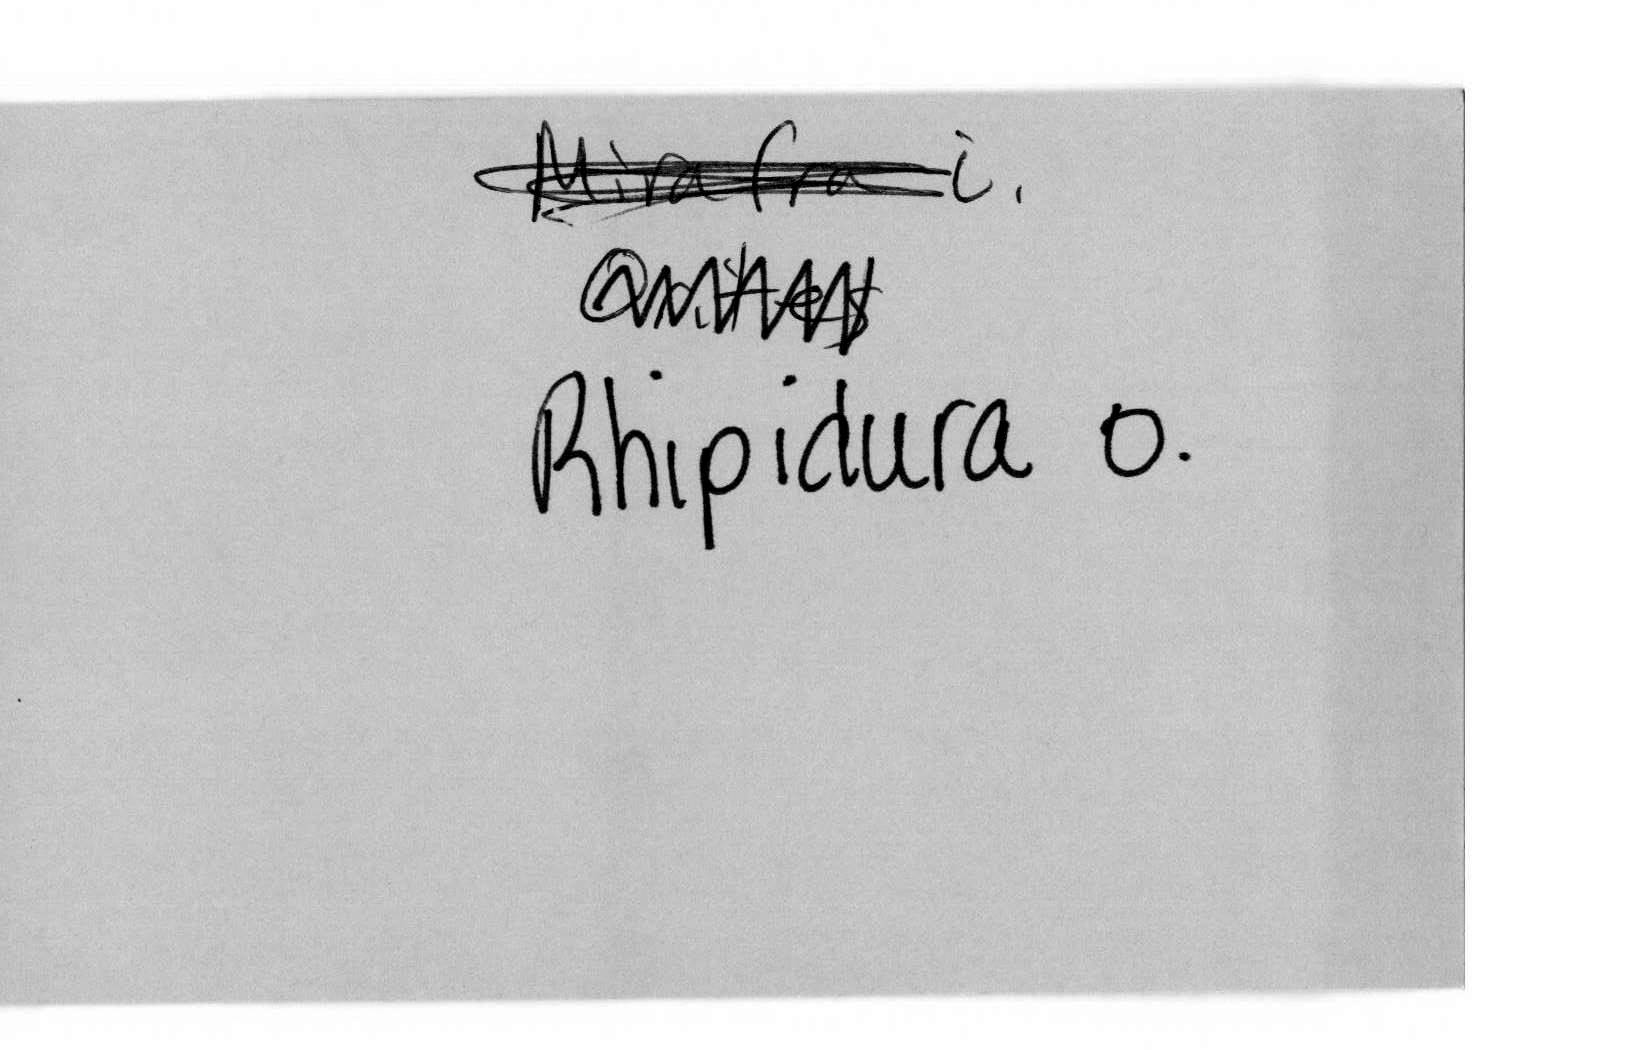 Mirafra i.
Rhipidura o.